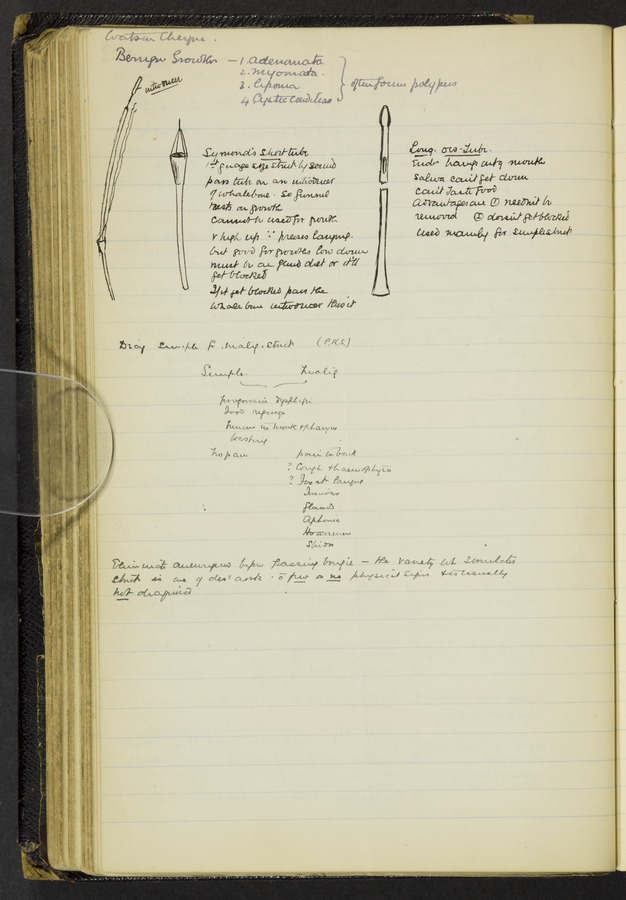 Watson Cheyne.
Benign Growths — 1. adenomata
2. myomata.
3. lipoma
4 Cystic condition
often form polypus
introducer
Symond's Short tube
pass tube on an introducer
of whalebone. So funnel
rests on growth
cannot be used for growth
v high up ∵ presses larynx.
but good for growths low down
must be on fluid diet or it'll
get blocked
If it get blocked pass the
whalebone introducer thro' it
Long. oes-tube.
End hangs out of mouth
saliva can't get down
can't taste food
advantages are ① needn't be
removed ② doesn't get blocked
used mainly for simple strict
Diag simple fr. malig. strict (P.N.S.)
Simple Malig
progressive dysphagia
food regurg
mucus in mouth & pharynx
wasting
no pain pain in back
? Cough & haemophysis
? Invat larynx
Nervous
Glands
Aphonia
Hoarseness
Stridor
Eliminate aneurysm before passing bougie — the variety wh simulates
strict is one of des: aorta. c̄ few or no physical signs & is usually
not diagnosed